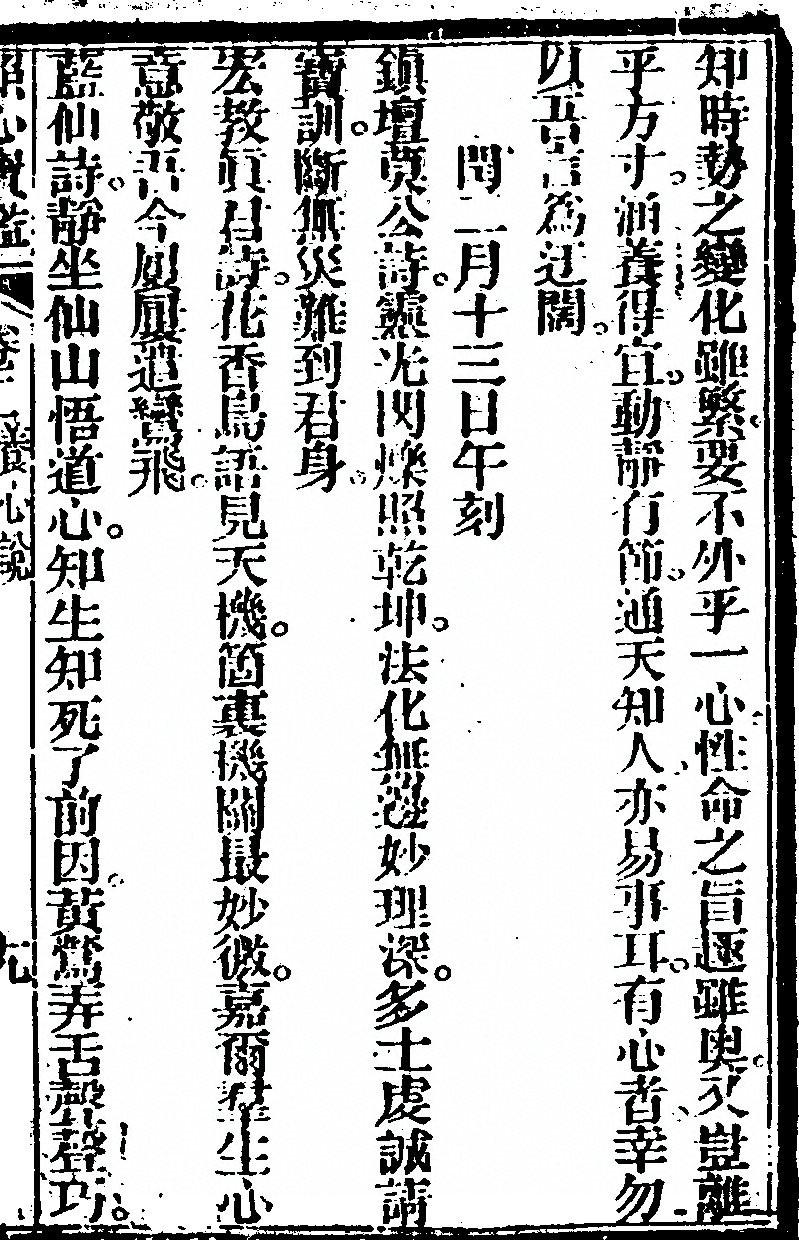 知時勢之變化雖繁要不外乎一心性命之旨趣雖奧又豈離
乎方寸涵養得宜動靜有節通天知人亦易事耳有心者幸勿
以吾言為迂闊
閏二月十三日午刻
鎮壇莫公詩靈光閃爍照乾坤法化無邊妙理深多士虔誠請
寶訓斷無災難到君身
宏教真君詩花香鳥語見天機箇裏機關最妙微嘉爾羣生心
意敬吾今屢屢遣鸞飛
藍仙詩靜坐仙山悟道心知生知死了前因黃鶯弄舌聲聲巧
照心
養心說